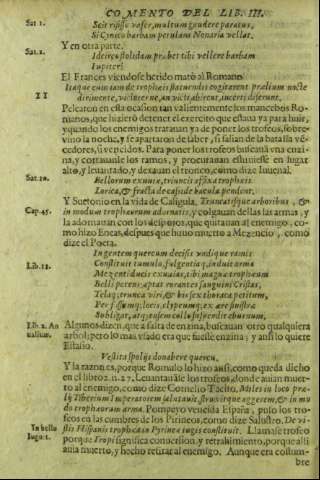 COMENTO DEL LIB. III.
Sat 1. Scit risisse vafer, multum gaudere paratus,
Si Cynico barbam petulans Nonaria vellat.
Y en otra parte.
Sat. 2. Idcirco stolidam præbet tibi vellere barbam
Iupiter?
El Frances viendose herido matò al Romano
Itaque cum iam de trophæis statuendis cogitarent prælium nocte
11 dirimente, viceruntne, an victi abirent, incerti discrunt.
Pelearon en esta ocasion tan valientemente los mancebos Ro-
manos, que hizierō detener el exercito que estaua ya para huir,
y quando los enemigos tratauan ya de poner los trofeos, sobre-
vino la noche, y se apartaron
cedores, si vencidos. Para poner los trofeos buscauā vna enzi-
na, y cortauanle los ramos, y procurauan estuuiesse en lugar
alto, y leuantado, y dexauan el tronco, como dize Iuuenal.
Sat. 10. Bellorum exuuiæ, truncis affixa trophæis
Lorica, & fracta de casside buccula pendens.
Cap. 45. Y Suetonio en la vida de Caligula, Truncatisque arboribus, &
in modum trophæorum adornatis, y colgauan dellas las armas, y
la adornauan con los despojos, que quitauan al enemigo, co-
mo hizo Eneas, despues que huuo muerto a Mezencio, como
dize el Poeta.
Ingentem quercum decisis vndique ramis
Lib. 11. Constituit tumulo, fulgentiaq, induit arma
Mezenti ducis exuuias, tibi magna trophæum
Bellipotens; aptat rorantes sanguine cristas,
Telaq; trunca viri, & bis sex thoraca petitum,
Perfossumq; locis, clypeumq; ex ære sinistræ
Subligat, atq; ensem collo suspendit eburnum,
Lib. 2. Algunos dizen, que a falta de enzina, buscauan otro qualquiera
arbol; pero lo mas vsado era que fuesse enzina; y ansi lo quiere
Estasio.
Vestita spolijs donabere quercu,
Y la razon es, porque Romulo lo hizo ansi, como queda dicho
en el libro 2. n. 27. Leuantauāse los trofeos donde auian muer-
to al enemigo, como dize Cornelio Tacito, Miles in loco præ-
lij Tiberium Imperatorem salutauit, struxitque aggerem, & in mo
do trophæorum arma. Pompeyo vencida España, puso los tro-
feos en las cumbres de los Pirineos, como dize Salustro, De vi-
In bello Iugur. ctis Hispanis trophæa in Pyrineis iugis constituit. Llamase trofeo
porque Tropi significa conuersion, y retrahimiento, porque alli
auia muerto, y hecho retirar al enemigo. Aunque era costum-
bre